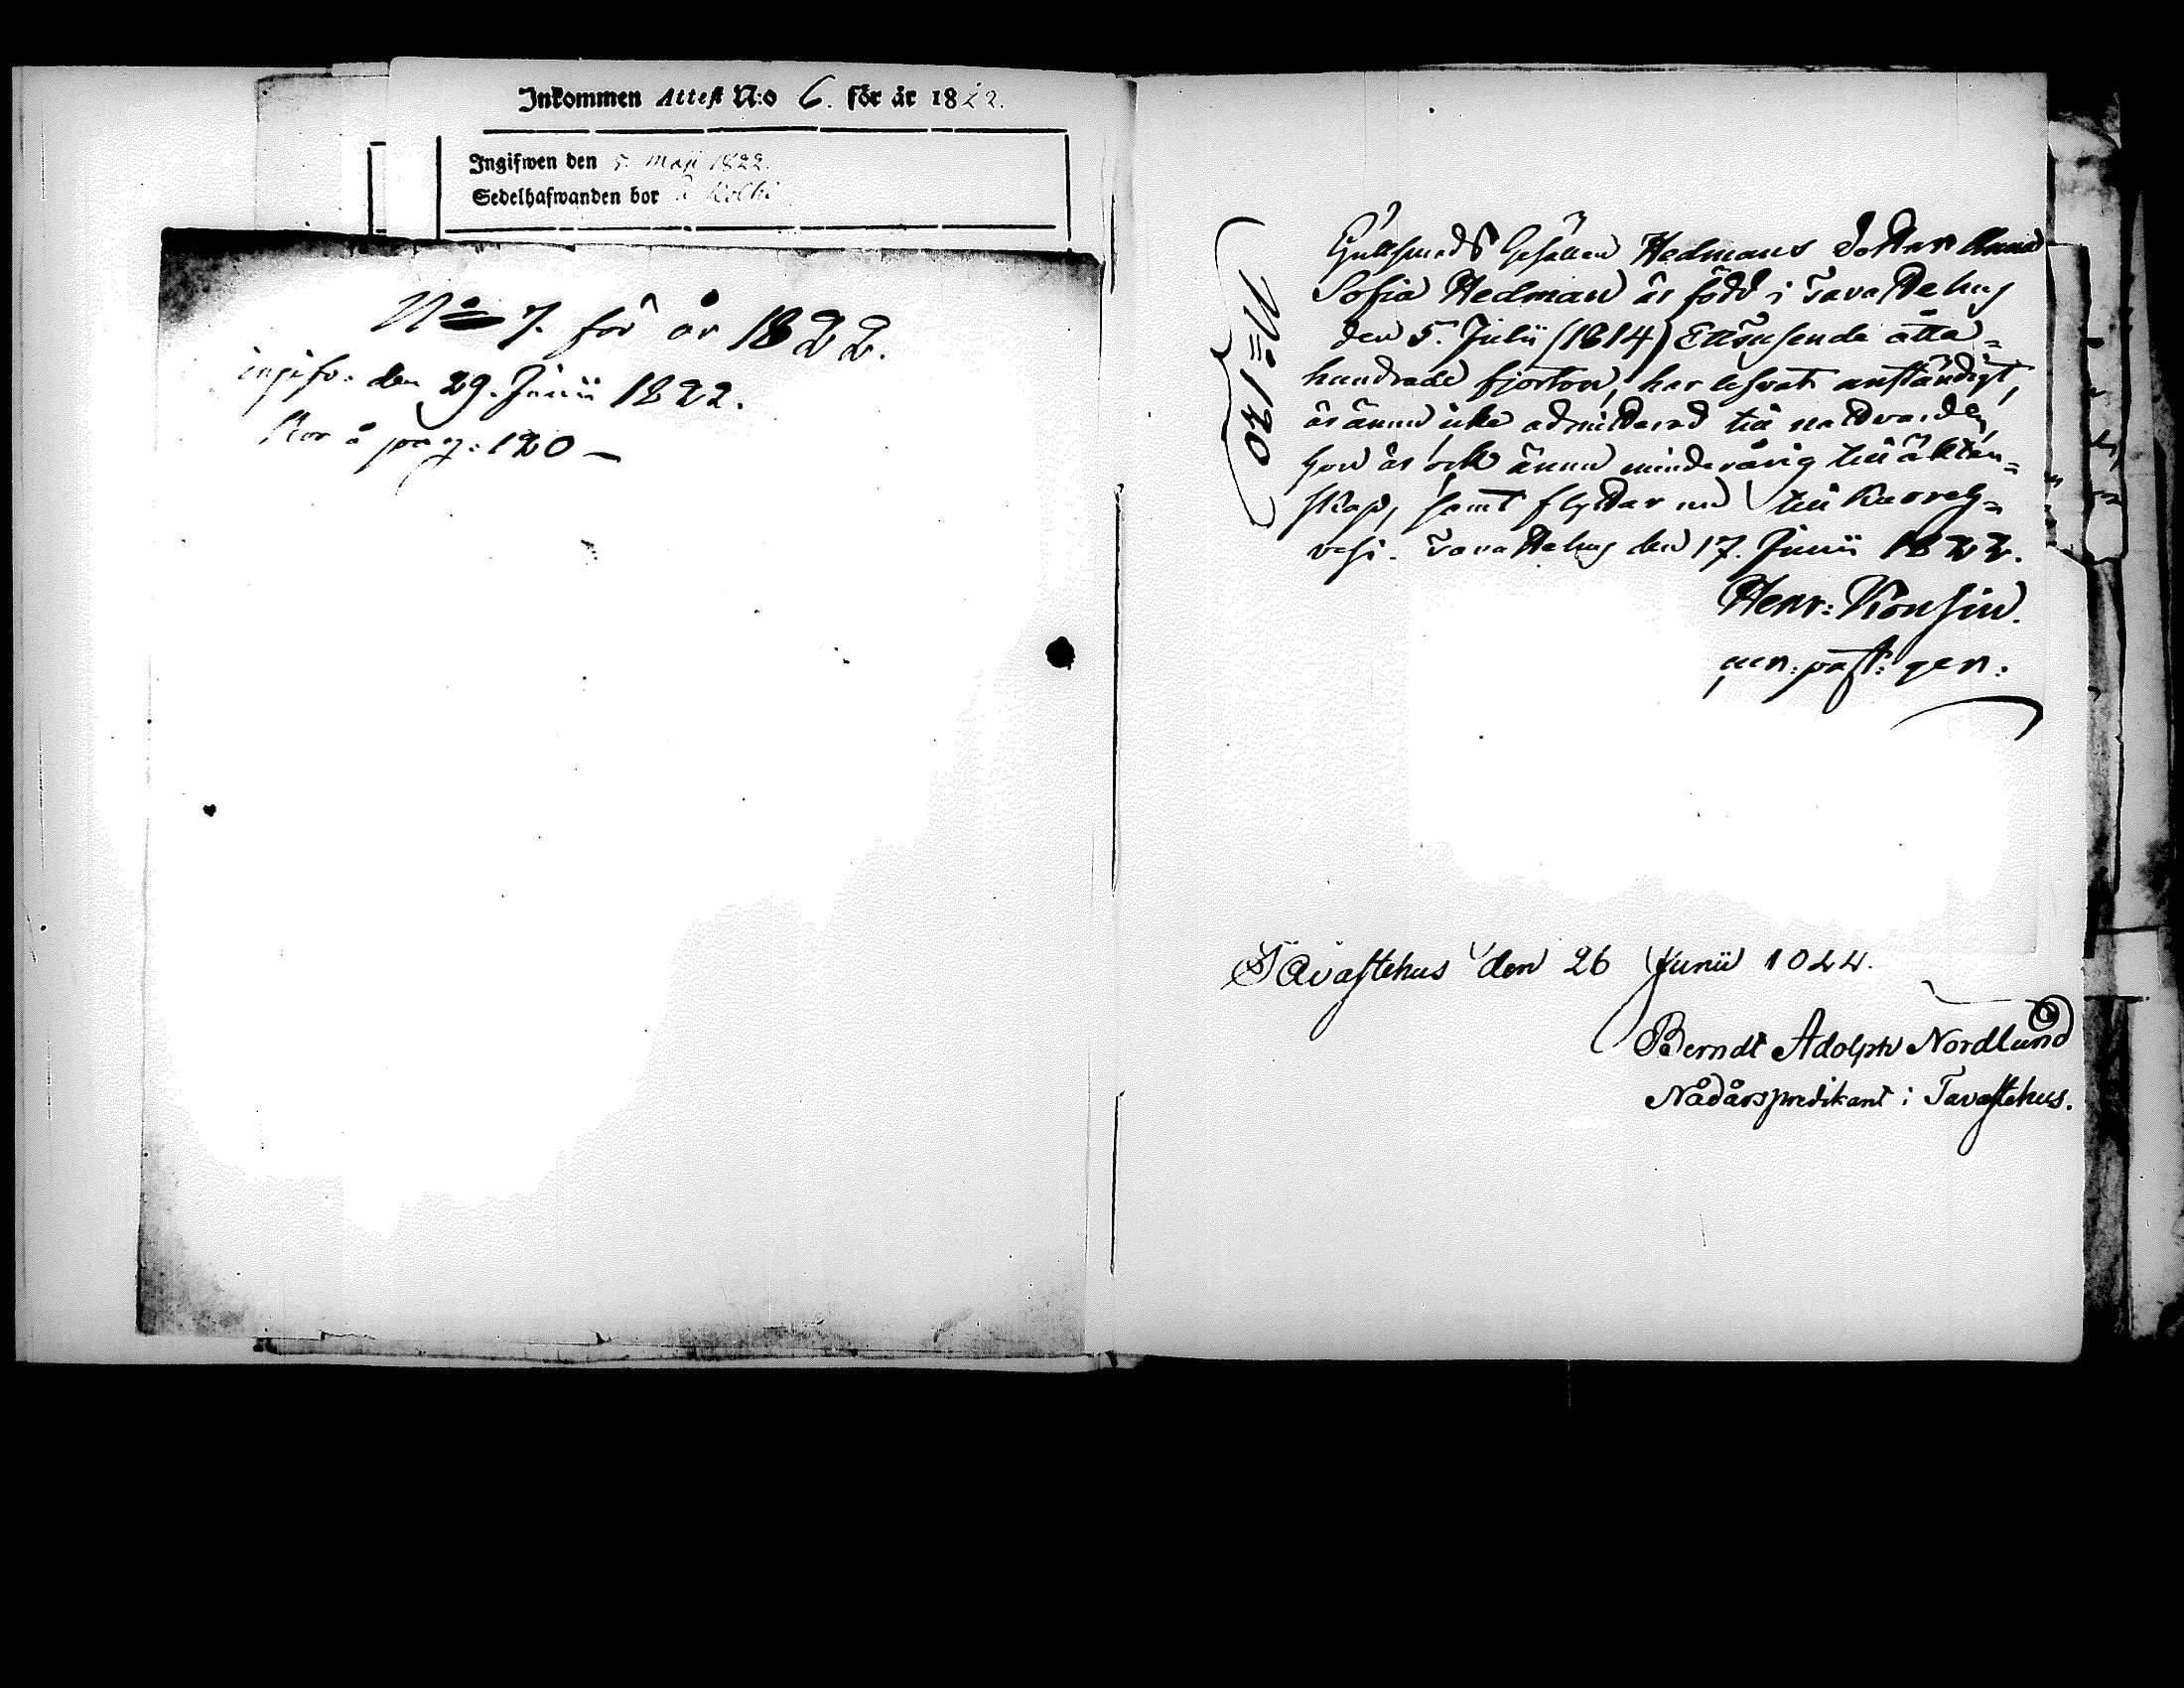 Inkommen Attest N:o 6. för år 1822.
Ingifwen den 5 Maji 1822.
Sedelhafwanden bor å Kolki
No 7. för år 1822.
ingifv: den 29. Junii 1822.
Bor å pag: 120 —
No 120
Gullsmeds Gesällen Hedmans Dotter Anna
Sofia Hedman är född i Tavastehus
den 5. Julii (1814) Ettusende åtta=
hundrade fjorton, har lefvat anständigt,
är ännu icke admitterad till nattvarden,
hon är ock ännu minderårig till äkten=
skap, samt flyttar nu till Karvely=
vesi. Tavastehus den 17. Junii 1822.
Henr: Konsin.
past:
Tavastehus den 26 Junii 1844.
Berndt Adolph Nordlund
Nådårspredikant i Tavastehus.